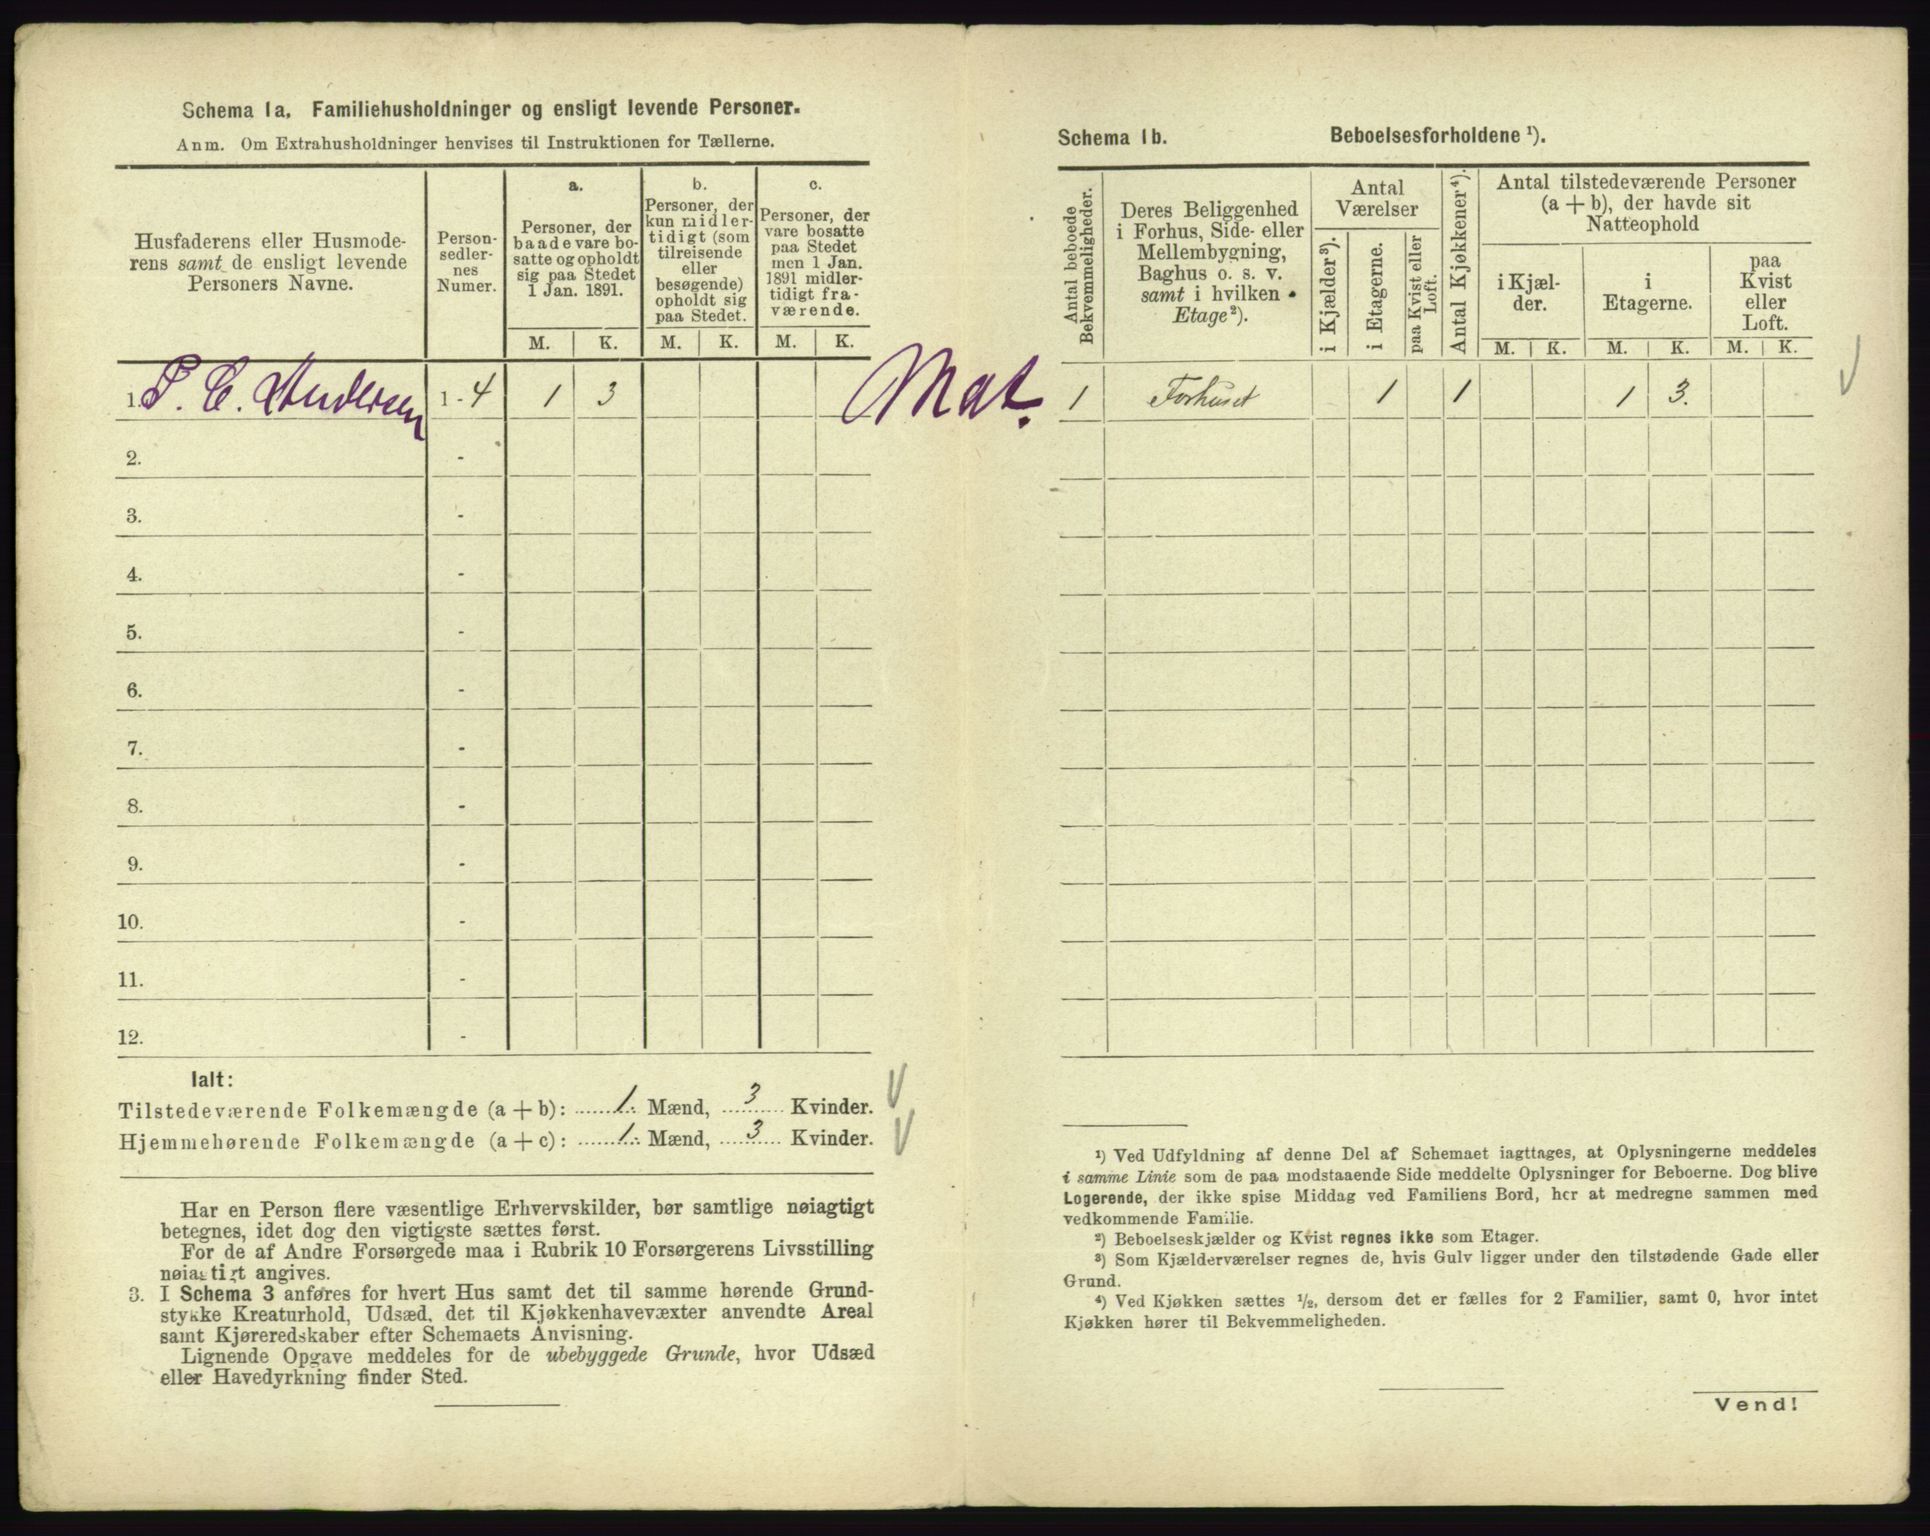 Schema 1a. Familiehusholdninger og ensligt levende Personer.
Anm. Om Extrahusholdninger henvises til Instruktionen for Tællerne.
Husfaderens eller Husmode-
rens samt de ensligt levende
Personers Navne.
Person-
sedler-
nes
Numer.
a.
Personer, der
baade vare bo-
satte og opholdt
sig paa Stedet
1 Jan. 1891.
b.
Personer, der
kun midler-
tidigt (som
tilreisende
eller
besøgende)
opholdt sig
paa Stedet.
c.
Personer, der
vare bosatte
paa Stedet
men 1 Jan.
1891 midler-
tidigt fra-
værende.
M. K. M. K. M. K.
1. P. C. Andersen 1 - 4 1 3 Mat.
2. -
3. -
4. -
5. -
6. -
7. -
8. -
9. -
10. -
11. -
12. -
Ialt:
Tilstedeværende Folkemængde (a + b): 1. Mænd, 3 Kvinder.
Hjemmehørende Folkemængde (a + c): 1. Mænd, 3 Kvinder.
Har en Person flere væsentlige Erhvervskilder, bør samtlige nøiagtigt
betegnes, idet dog den vigtigste sættes først.
For de af Andre Forsørgede maa i Rubrik 10 Forsørgerens Livsstilling
nøiagtigt angives.
3. I Schema 3 anføres for hvert Hus samt det til samme hørende Grund-
stykke Kreaturhold, Udsæd, det til Kjøkkenhavevæxter anvendte Areal
samt Kjøreredskaber efter Schemaets Anvisning.
Lignende Opgave meddeles for de ubebyggede Grunde, hvor Udsæd
eller Havedyrkning finder Sted.
Schema 1b. Beboelsesforholdene ¹).
Antal beboede
Bekvemmeligheder.
Deres Beliggenhed
i Forhus, Side- eller
Mellembygning,
Baghus o. s. v.
samt i hvilken
Etage²).
Antal
Værelser
i Kjælder³).
i Etagerne.
paa Kvist eller
Loft.
Antal Kjøkkener⁴).
Antal tilstedeværende Personer
(a + b), der havde sit
Natteophold
i Kjæl-
der.
i
Etagerne.
paa
Kvist
eller
Loft.
M. K. M. K. M. K.
1 Forhuset 1 1 1 3.
¹) Ved Udfyldning af denne Del af Schemaet iagttages, at Oplysningerne meddeles
i samme Linie som de paa modstaaende Side meddelte Oplysninger for Beboerne. Dog blive
Logerende, der ikke spise Middag ved Familiens Bord, her at medregne sammen med
vedkommende Familie.
²) Beboelseskjælder og Kvist regnes ikke som Etager.
³) Som Kjælderværelser regnes de, hvis Gulv ligger under den tilstødende Gade eller
Grund.
⁴) Ved Kjøkken sættes ½, dersom det er fælles for 2 Familier, samt 0, hvor intet
Kjøkken hører til Bekvemmeligheden.
Vend!